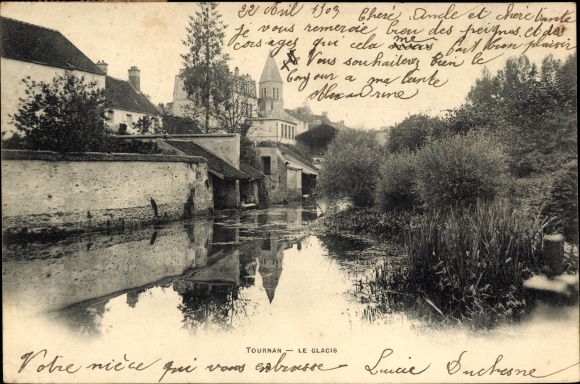 22 Avril 1903 Cheré Oncle et chère tante
Je vous remercie bien des peignes et des
corsages qui cela me fait bien plaisir
Vous souhaiterez bien le
bonjour a ma tante
Alexandrine
TOURNAN — LE GLACIS
Votre nièce qui vous embrasse Lucie Duchesne